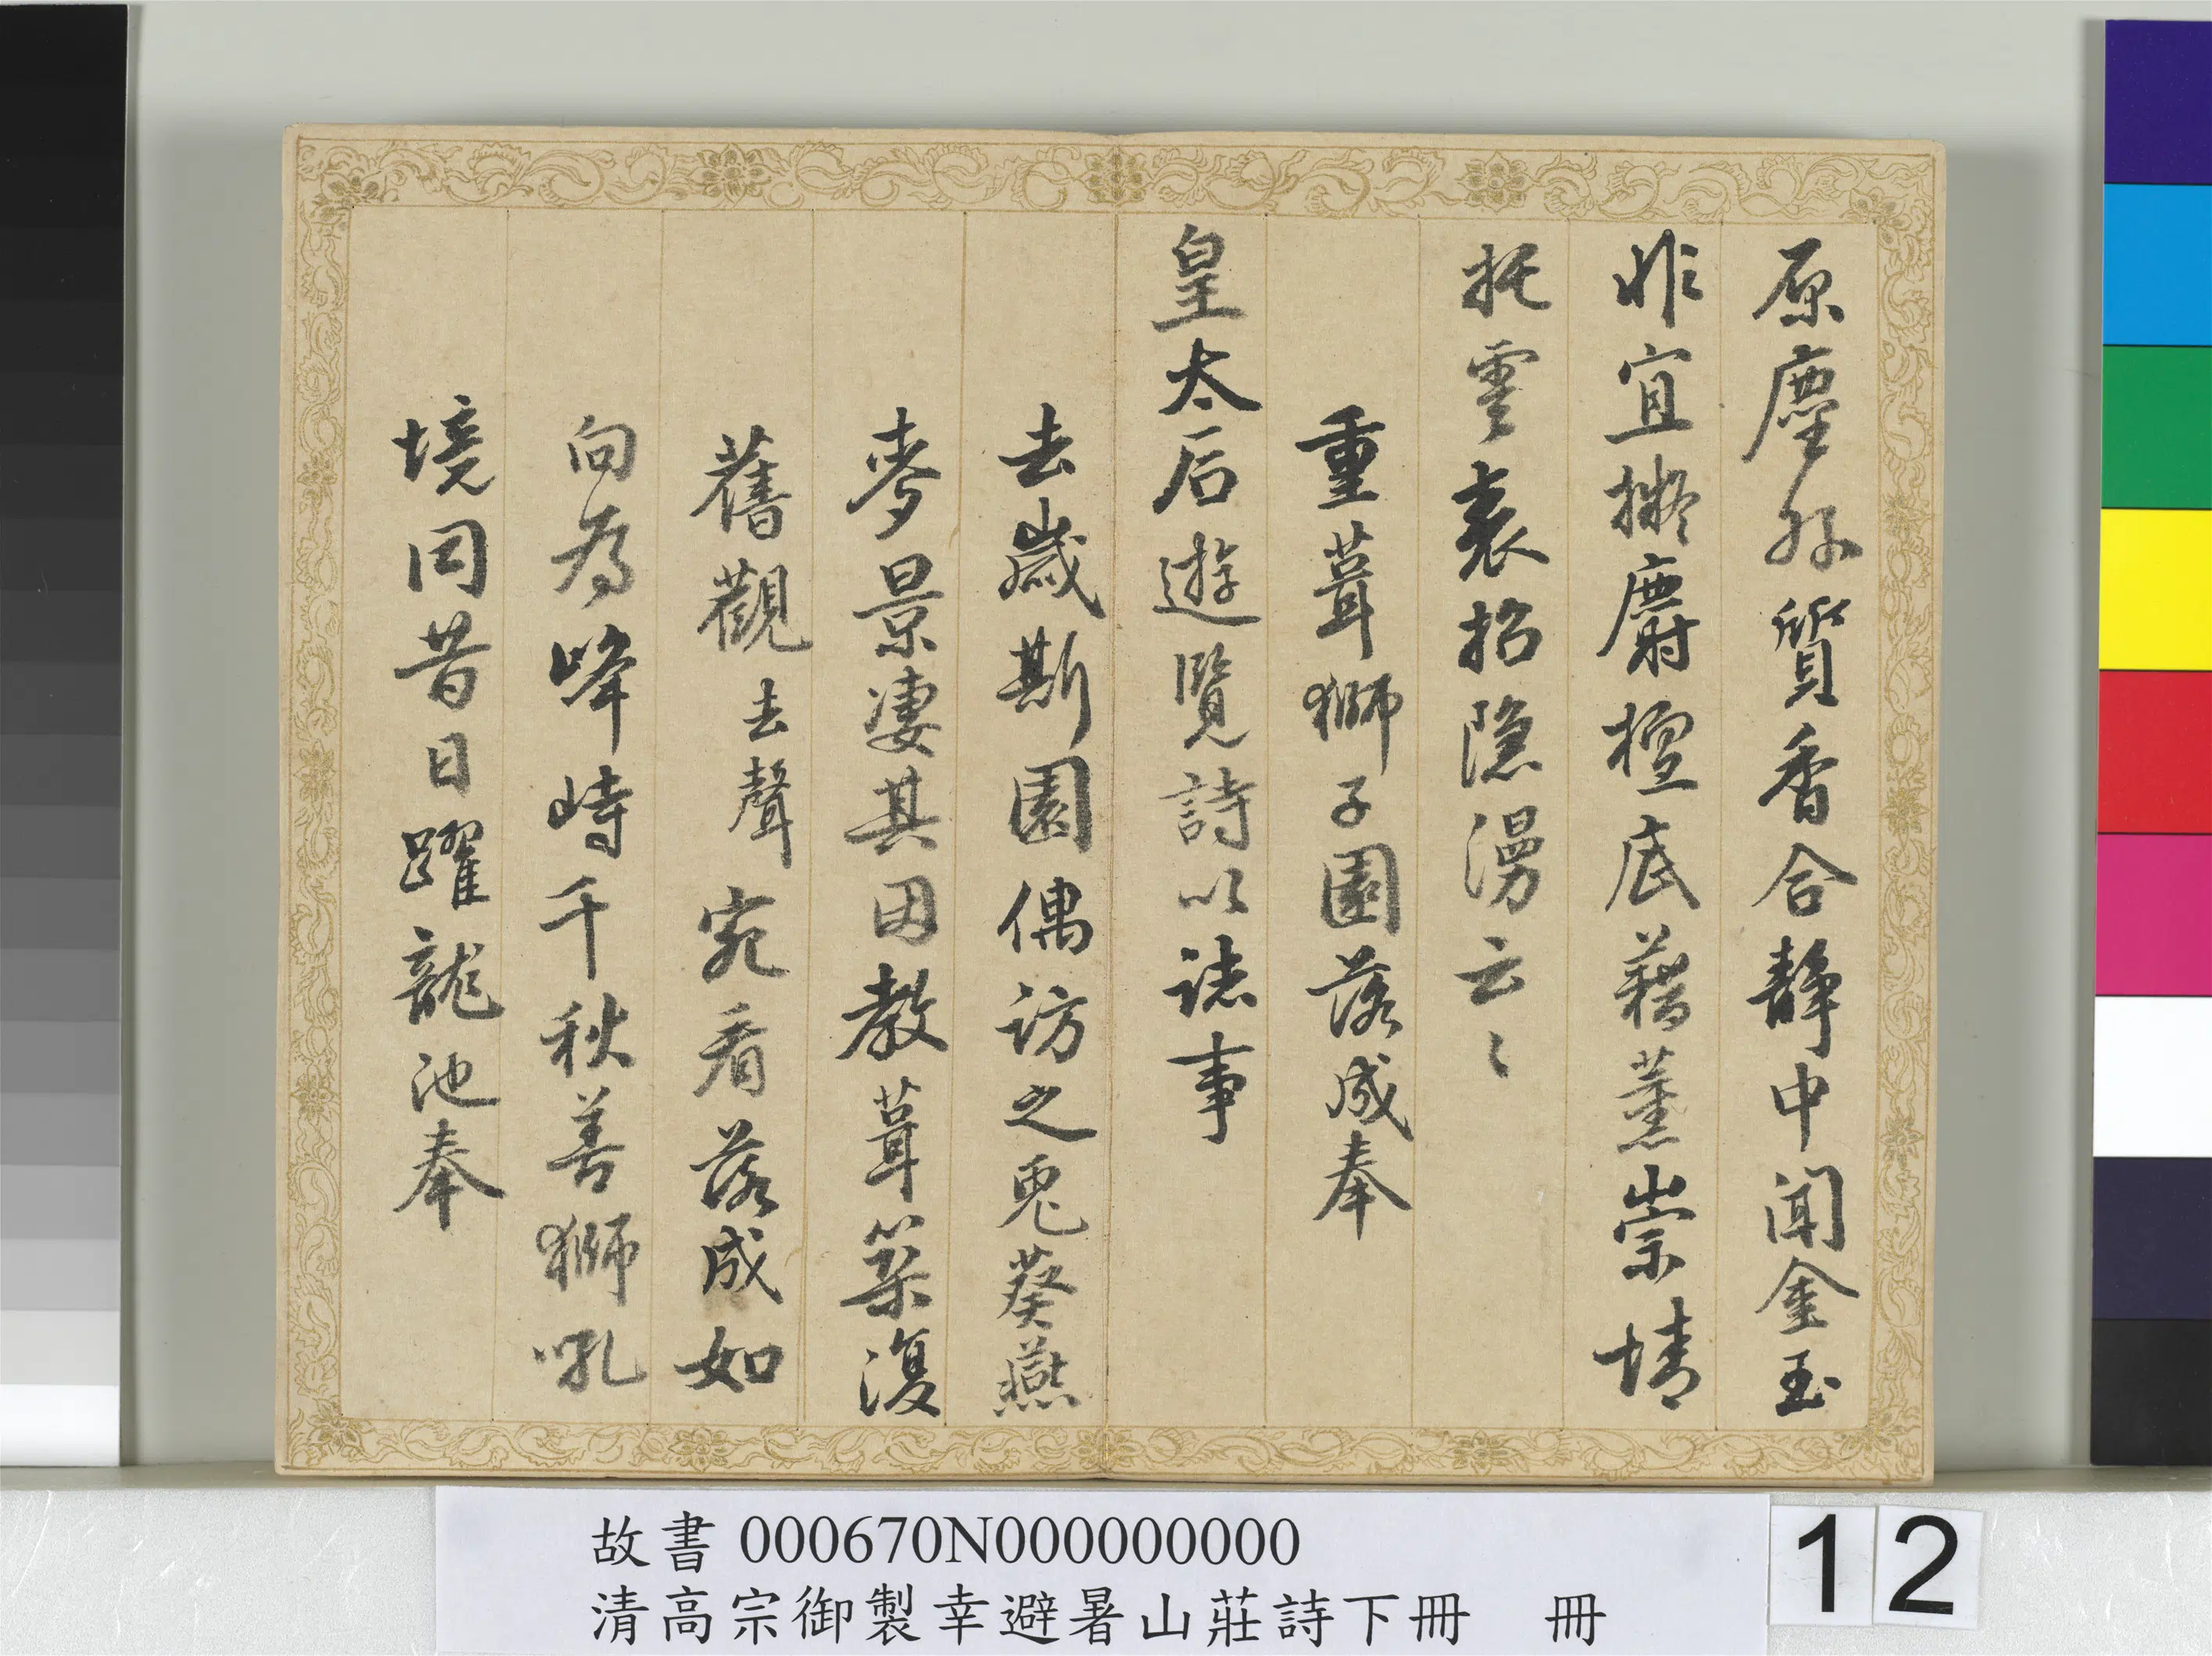 原塵外質香合靜中聞金玉
非宜擬麝檀底藉薰崇情
托雲裏招隱漫云〻
重葺獅子園落成奉
皇太后遊覽詩以誌事
去歲斯園偶訪之兎葵燕
麥景凄其因教葺築復
舊觀去聲宛看落成如
向為峰峙千秋善獅吼
境同昔日躍龍池奉
故書 000670N000000000
清高宗御製幸避暑山莊詩下冊 冊
12